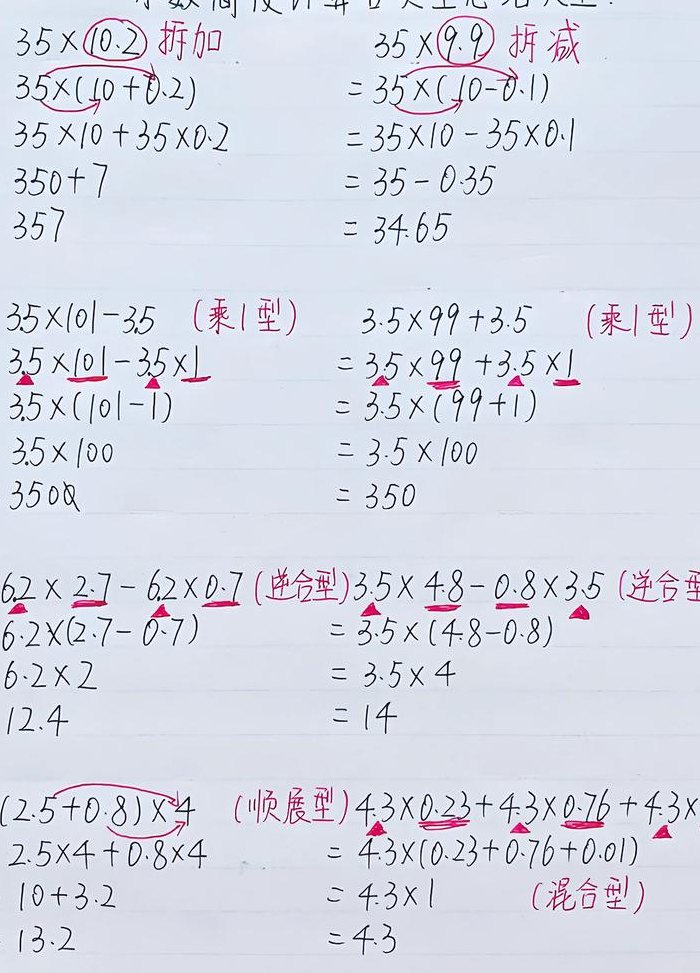 35×10.2 拆加
35×(10+0.2)
35×10+35×0.2
350+7
357
35×9.9 拆减
=35×(10-0.1)
=35×10-35×0.1
=35-0.35
=34.65
3.5×101-3.5 (乘1型)
3.5×101-3.5×1
3.5×(101-1)
3.5×100
350
3.5×99+3.5 (乘1型)
=3.5×99+3.5×1
=3.5×(99+1)
=3.5×100
=350
6.2×2.7-6.2×0.7 (逆合型)
6.2×(2.7-0.7)
6.2×2
12.4
3.5×4.8-0.8×3.5 (逆合型
=3.5×(4.8-0.8)
=3.5×4
=14
(2.5+0.8)×4 (顺展型)
2.5×4+0.8×4
10+3.2
13.2
4.3×0.23+4.3×0.76+4.3×
=4.3×(0.23+0.76+0.01)
=4.3×1 (混合型)
=4.3